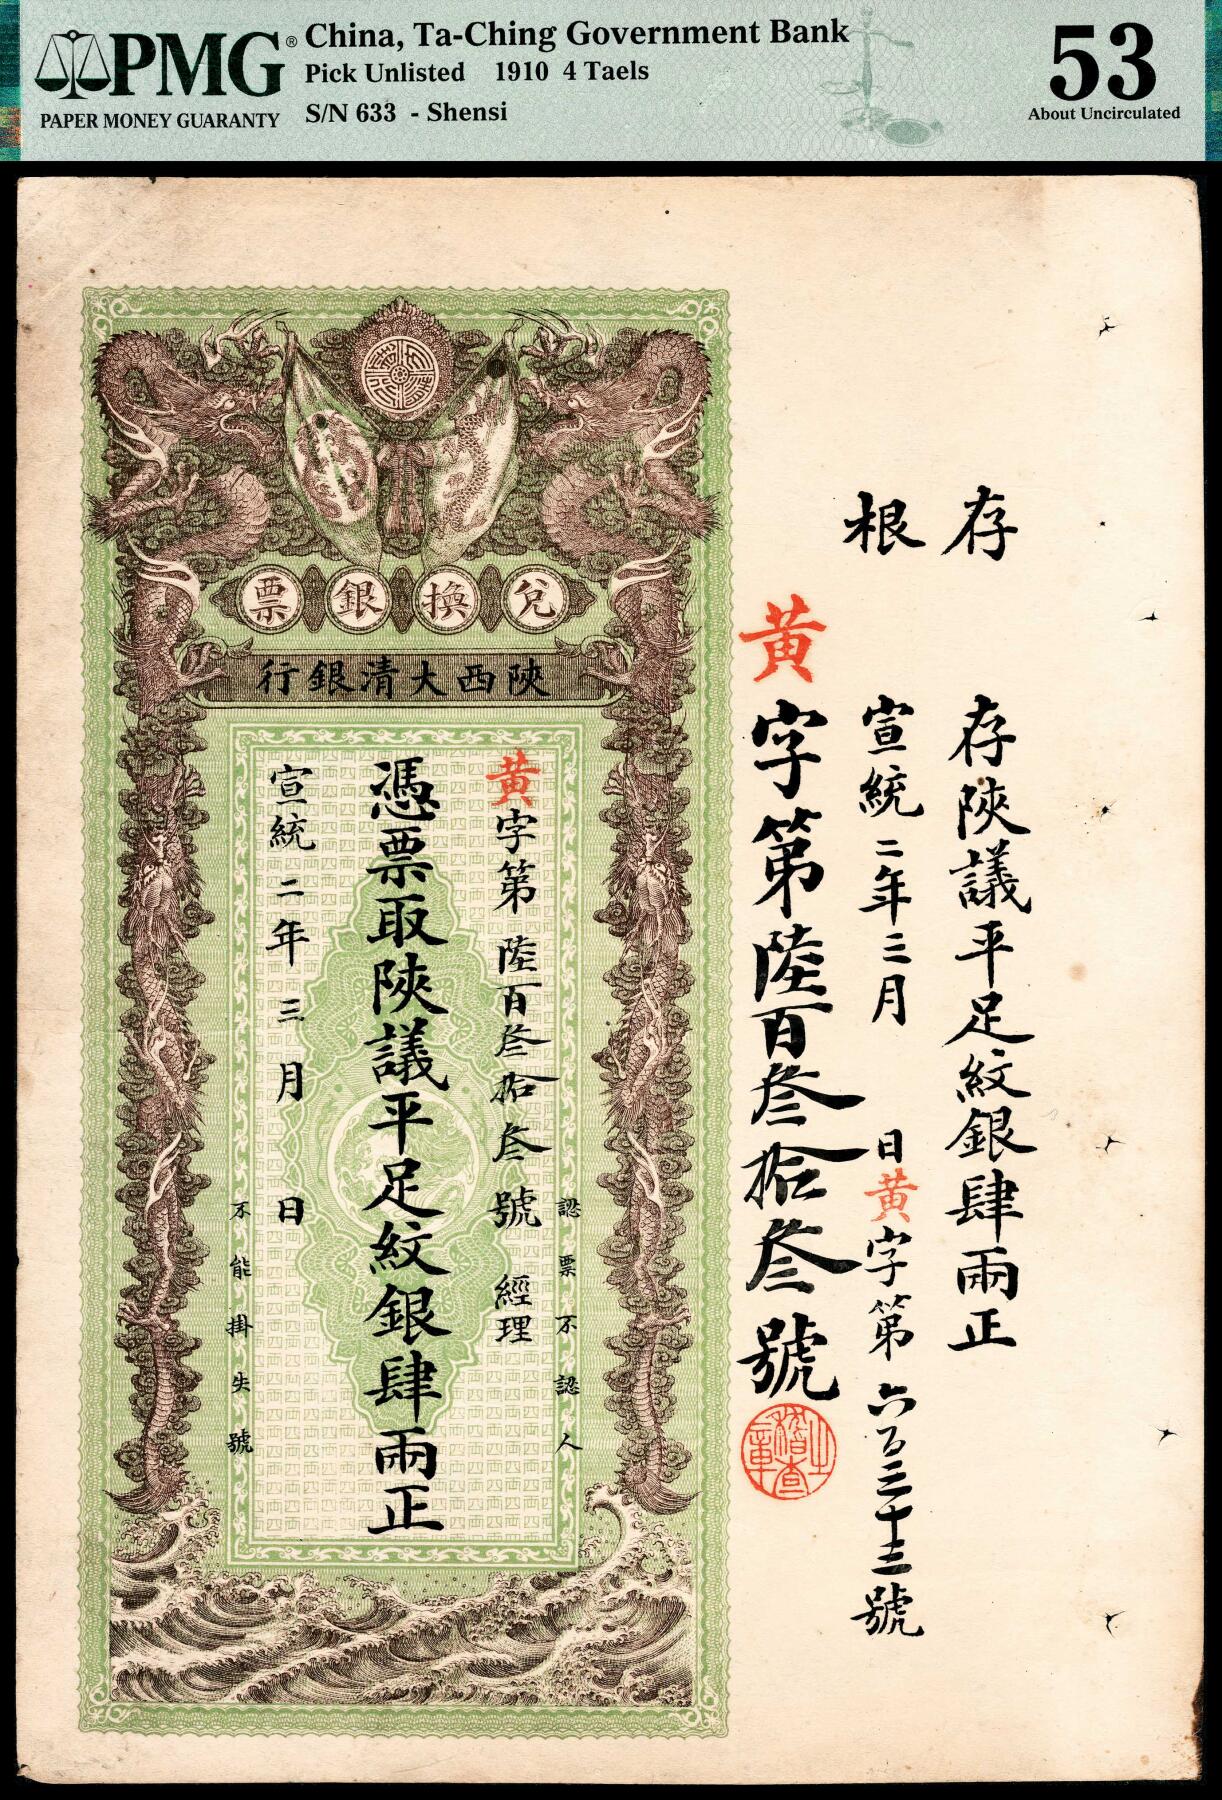 PMG®
PAPER MONEY GUARANTY
China, Ta-Ching Government Bank
Pick Unlisted 1910 4 Taels
S/N 633 - Shensi
53
About Uncirculated
存根
存陝議平足紋銀肆兩正
宣統二年三月 日黃字第六百三十三號
黃字第陸百叁拾叁號
兌換銀票
陝西大清銀行
認票不認人
黃字第陸百叁拾叁號 經理
憑票取陝議平足紋銀肆兩正
宣統二年三月 日
不能掛失號